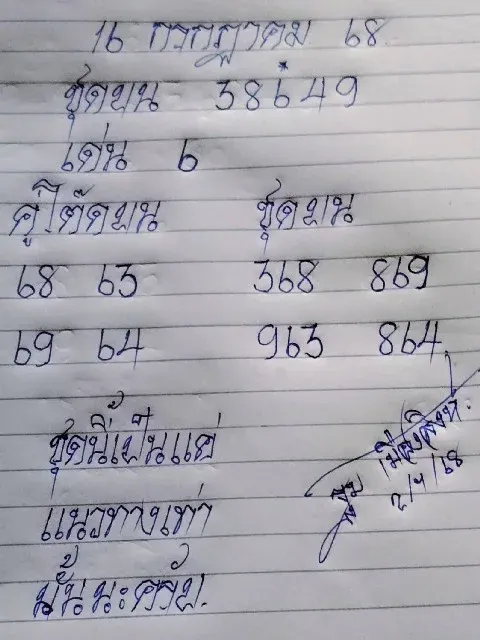 16 กรกฎาคม 68
ชุดบน 38649
เด่น 6
คู่โต๊ดบน ชุดบน
68 63 368 869
69 64 963 864
ชุดนี้เป็นแค่
แนวทางเท่า
นั้นนะครับ.